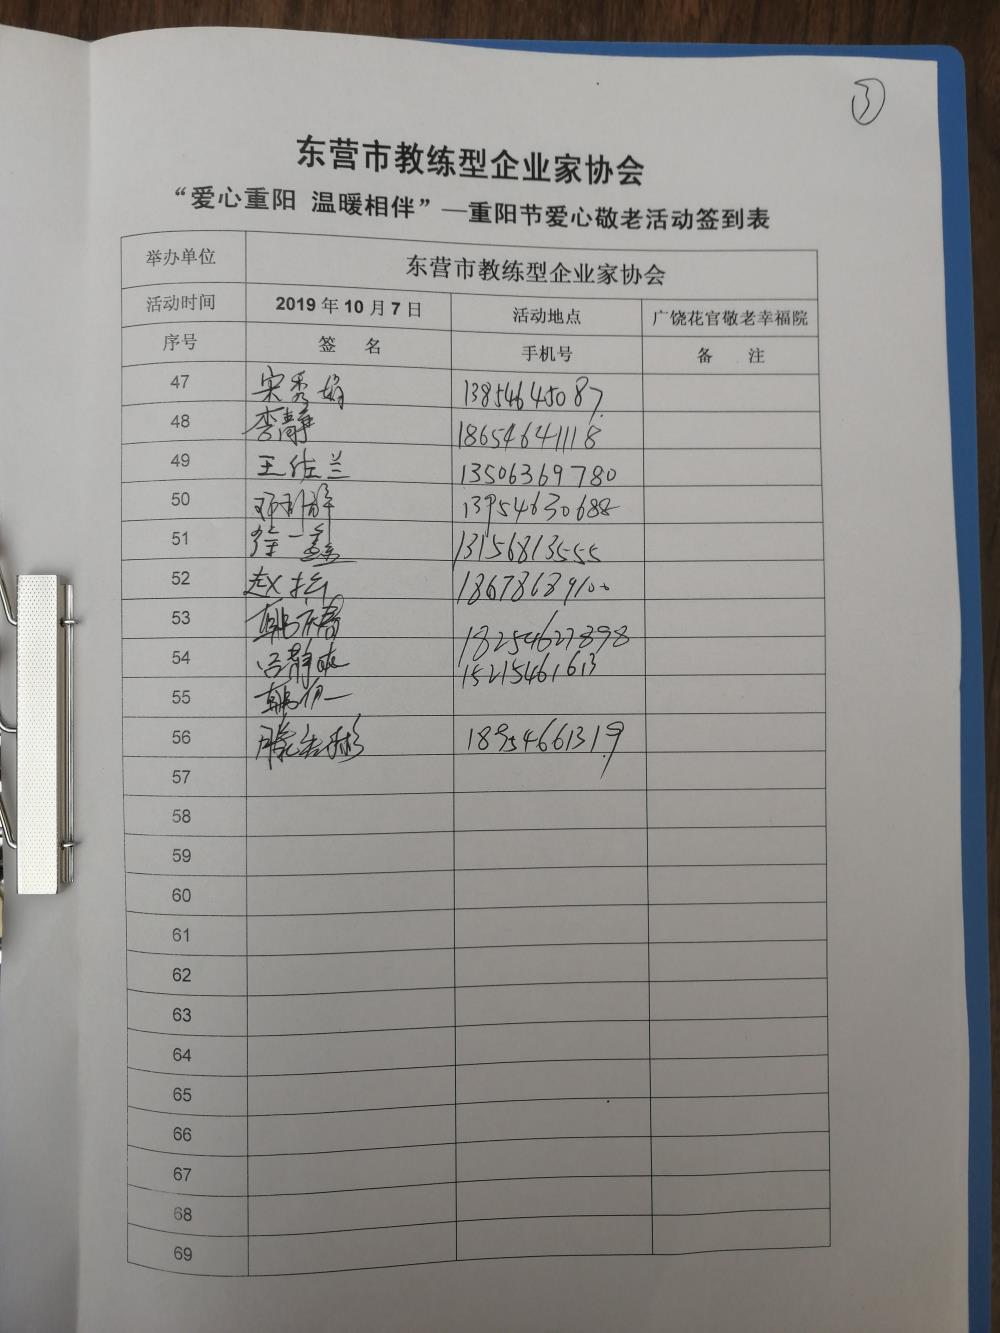 3
东营市教练型企业家协会
“爱心重阳 温暖相伴”—重阳节爱心敬老活动签到表
举办单位 东营市教练型企业家协会
活动时间 2019 年 10 月 7 日 活动地点 广饶花官敬老幸福院
序号 签 名 手机号 备 注
47 宋秀娟 13854645087
48 李静 18654641118
49 王佐兰 13506369780
50 13954630688
51 徐一鑫 13156813555
52 赵 18678689100
53 韩 18254627898
54 吕静 15215461613
55 韩伊一
56 滕 18954661319
57
58
59
60
61
62
63
64
65
66
67
68
69